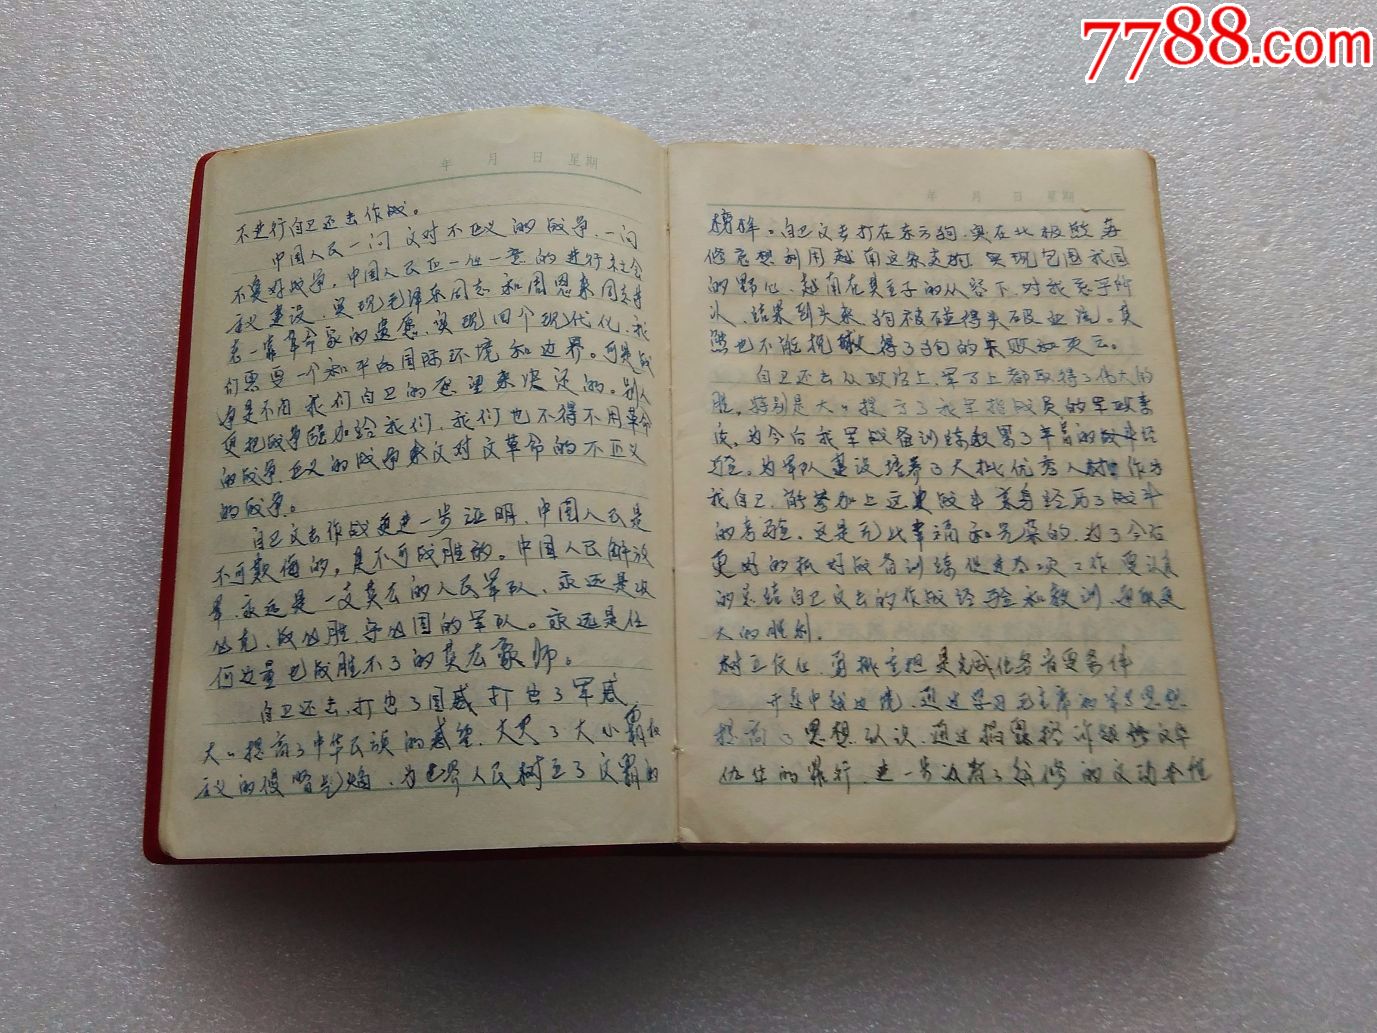 7788.com
年 月 日 星期
不进行自卫还击作战。
中国人民一向反对不正义的战争,一向
不爱好战争,中国人民正一心一意的进行社会
主义建设,实现毛泽东同志和周恩来同志等
老一辈革命家的遗愿,实现四个现代化,我
们需要一个和平的国际环境和边界。可是战
争是不以我们自卫的愿望来决定的。别人
要把战争强加给我们,我们也不得不用革命
的战争,正义的战争来反对反革命的不正义
的战争。
自卫反击作战更进一步证明,中国人民是
不可欺侮的,是不可战胜的。中国人民解放
军,永远是一支英雄的人民军队,永远是攻
必克,战必胜,守必固的军队。永远是任
何力量也战胜不了的英雄豪师。
自卫还击,打出了国威打出了军威
大大提高了中华民族的威望,大灭了大小霸权
主义的侵略气焰,为世界人民树立了反霸的
年 月 日 星期
榜样。自卫反击打在东方狗,实在北极熊,苏
修意想利用越南这条走狗,实现包围我国
的野心,越南在其主子的从容下,对我
结果到头来,狗被碰得头破血流。其
熊也不能挽救得了狗的失败和灭亡。
自卫还击从政治上,军事上都取得了伟大的
胜,特别是大大提高了我军指战员的军政素
质,为今后我军战备训练积累了丰富的战斗经
验,为军队建设培养了大批优秀人材,作为
我自己,能参加上这次战斗亲身经历了战斗
的考验,这是无比幸福和光荣的,为了今后
更好的抓好战备训练促进各项工作,要认真
的总结自卫反击的作战经验和教训,争取更
大的胜利。
树立信心,勇挑重担是完成任务首要条件
开到中越边境,通过学习毛主席的军事思想
提高了思想认识,通过揭露控诉越修反华
的罪行,进一步认清了越修的反动本性